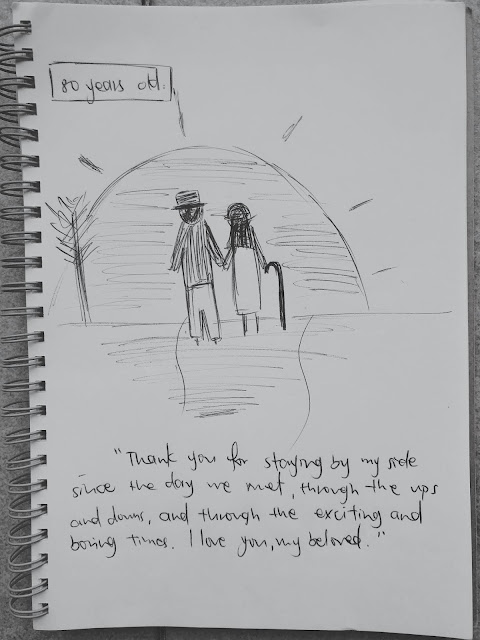 80 years old.
"Thank you for staying by my side
since the day we met, through the ups
and downs, and through the exciting and
boring times. I love you, my beloved."